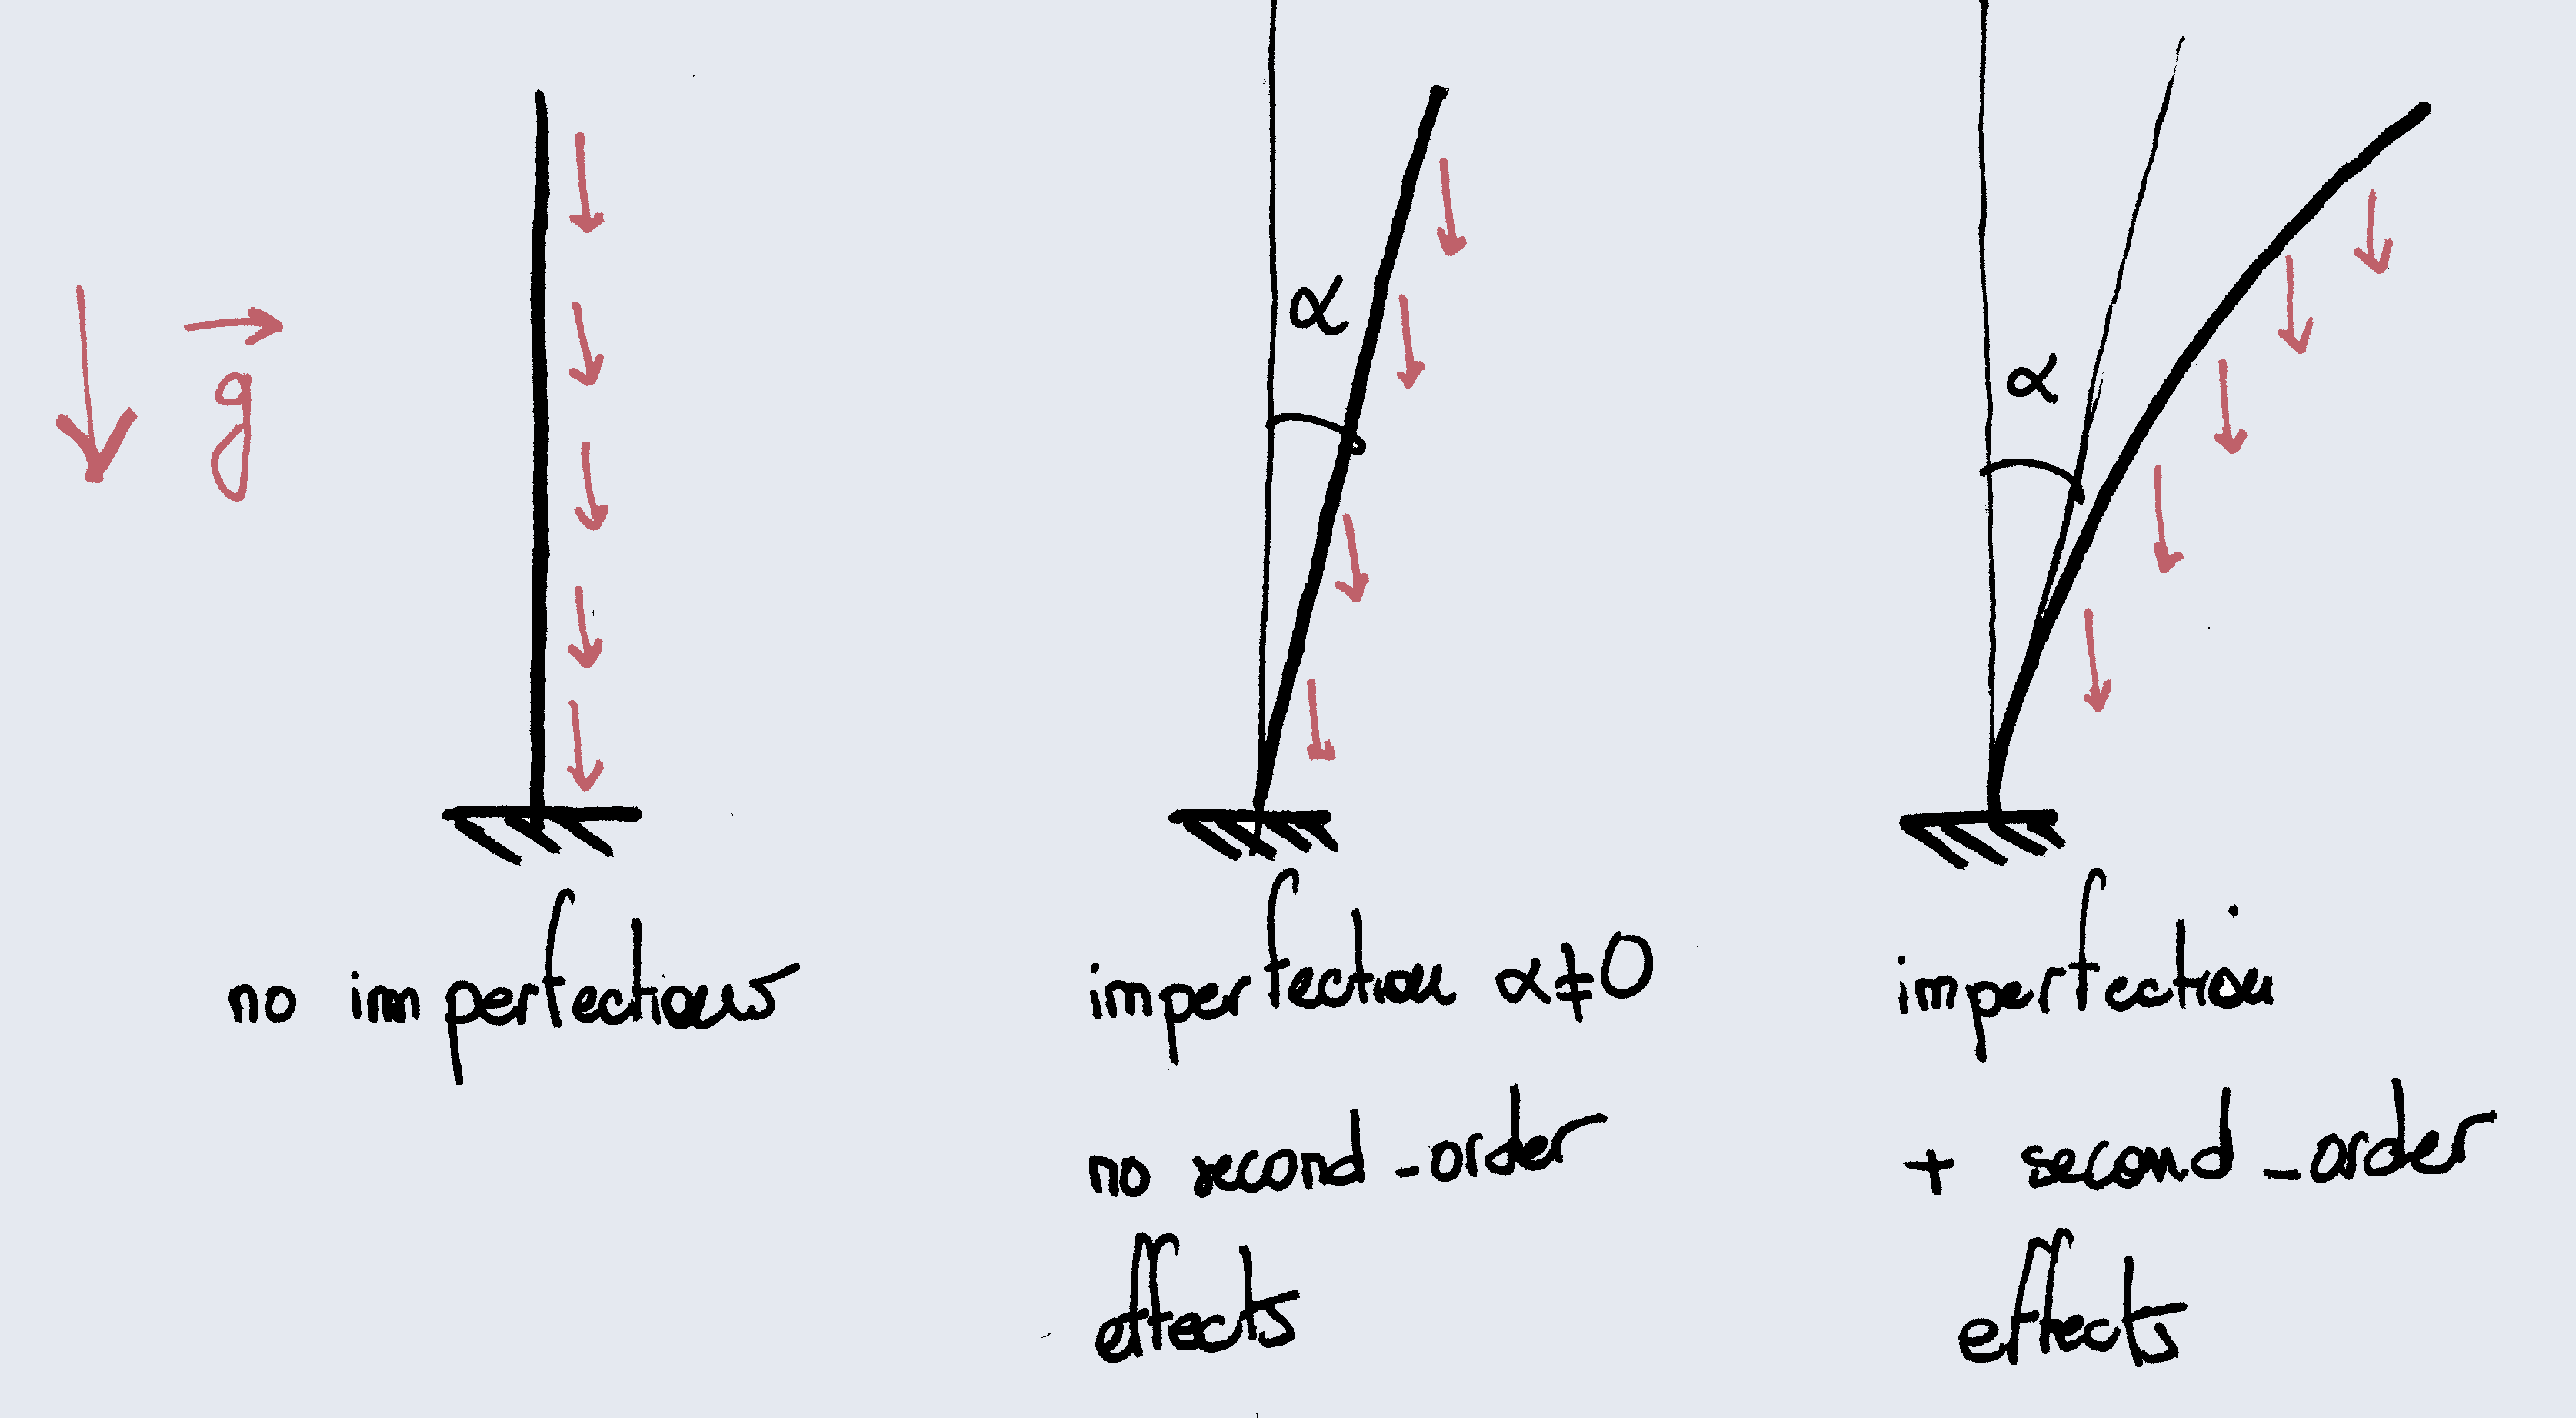 g
α
α
no imperfections
imperfection α≠0
no second-order
effects
imperfection
+ second-order
effects